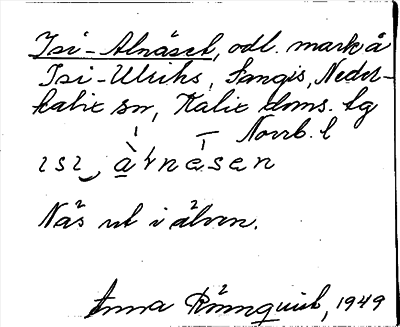 Isi-Alnäset, odl. mark å
Isi-Ulriks, Sangis, Neder-
kalix sn, Kalix doms. lg
Norrb. l
ısı‿ àṿnésen
Näs ut i älven.
Anna Rönnquist, 1949